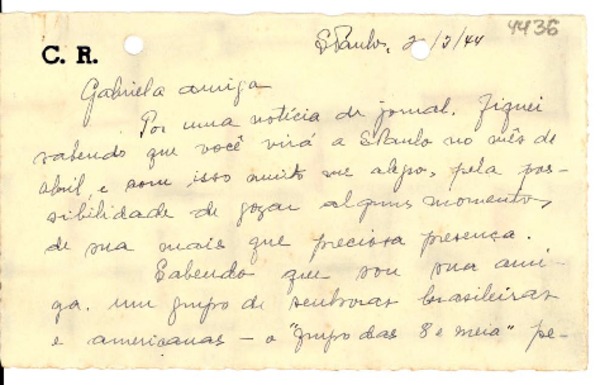 4436
C. R.
S Paulo, 2/3/44
Gabriela amiga
Por uma notícia de jornal, fiquei
sabendo que você virá a S Paulo no mês de
abril, e com isso muito me alegro, pela pos-
sibilidade de gozar alguns momentos,
de sua mais que preciosa presença.
Sabendo que sou sua ami-
ga, um grupo de senhoras brasileiras
e americanas — o "grupo das 8 e meia" pe-